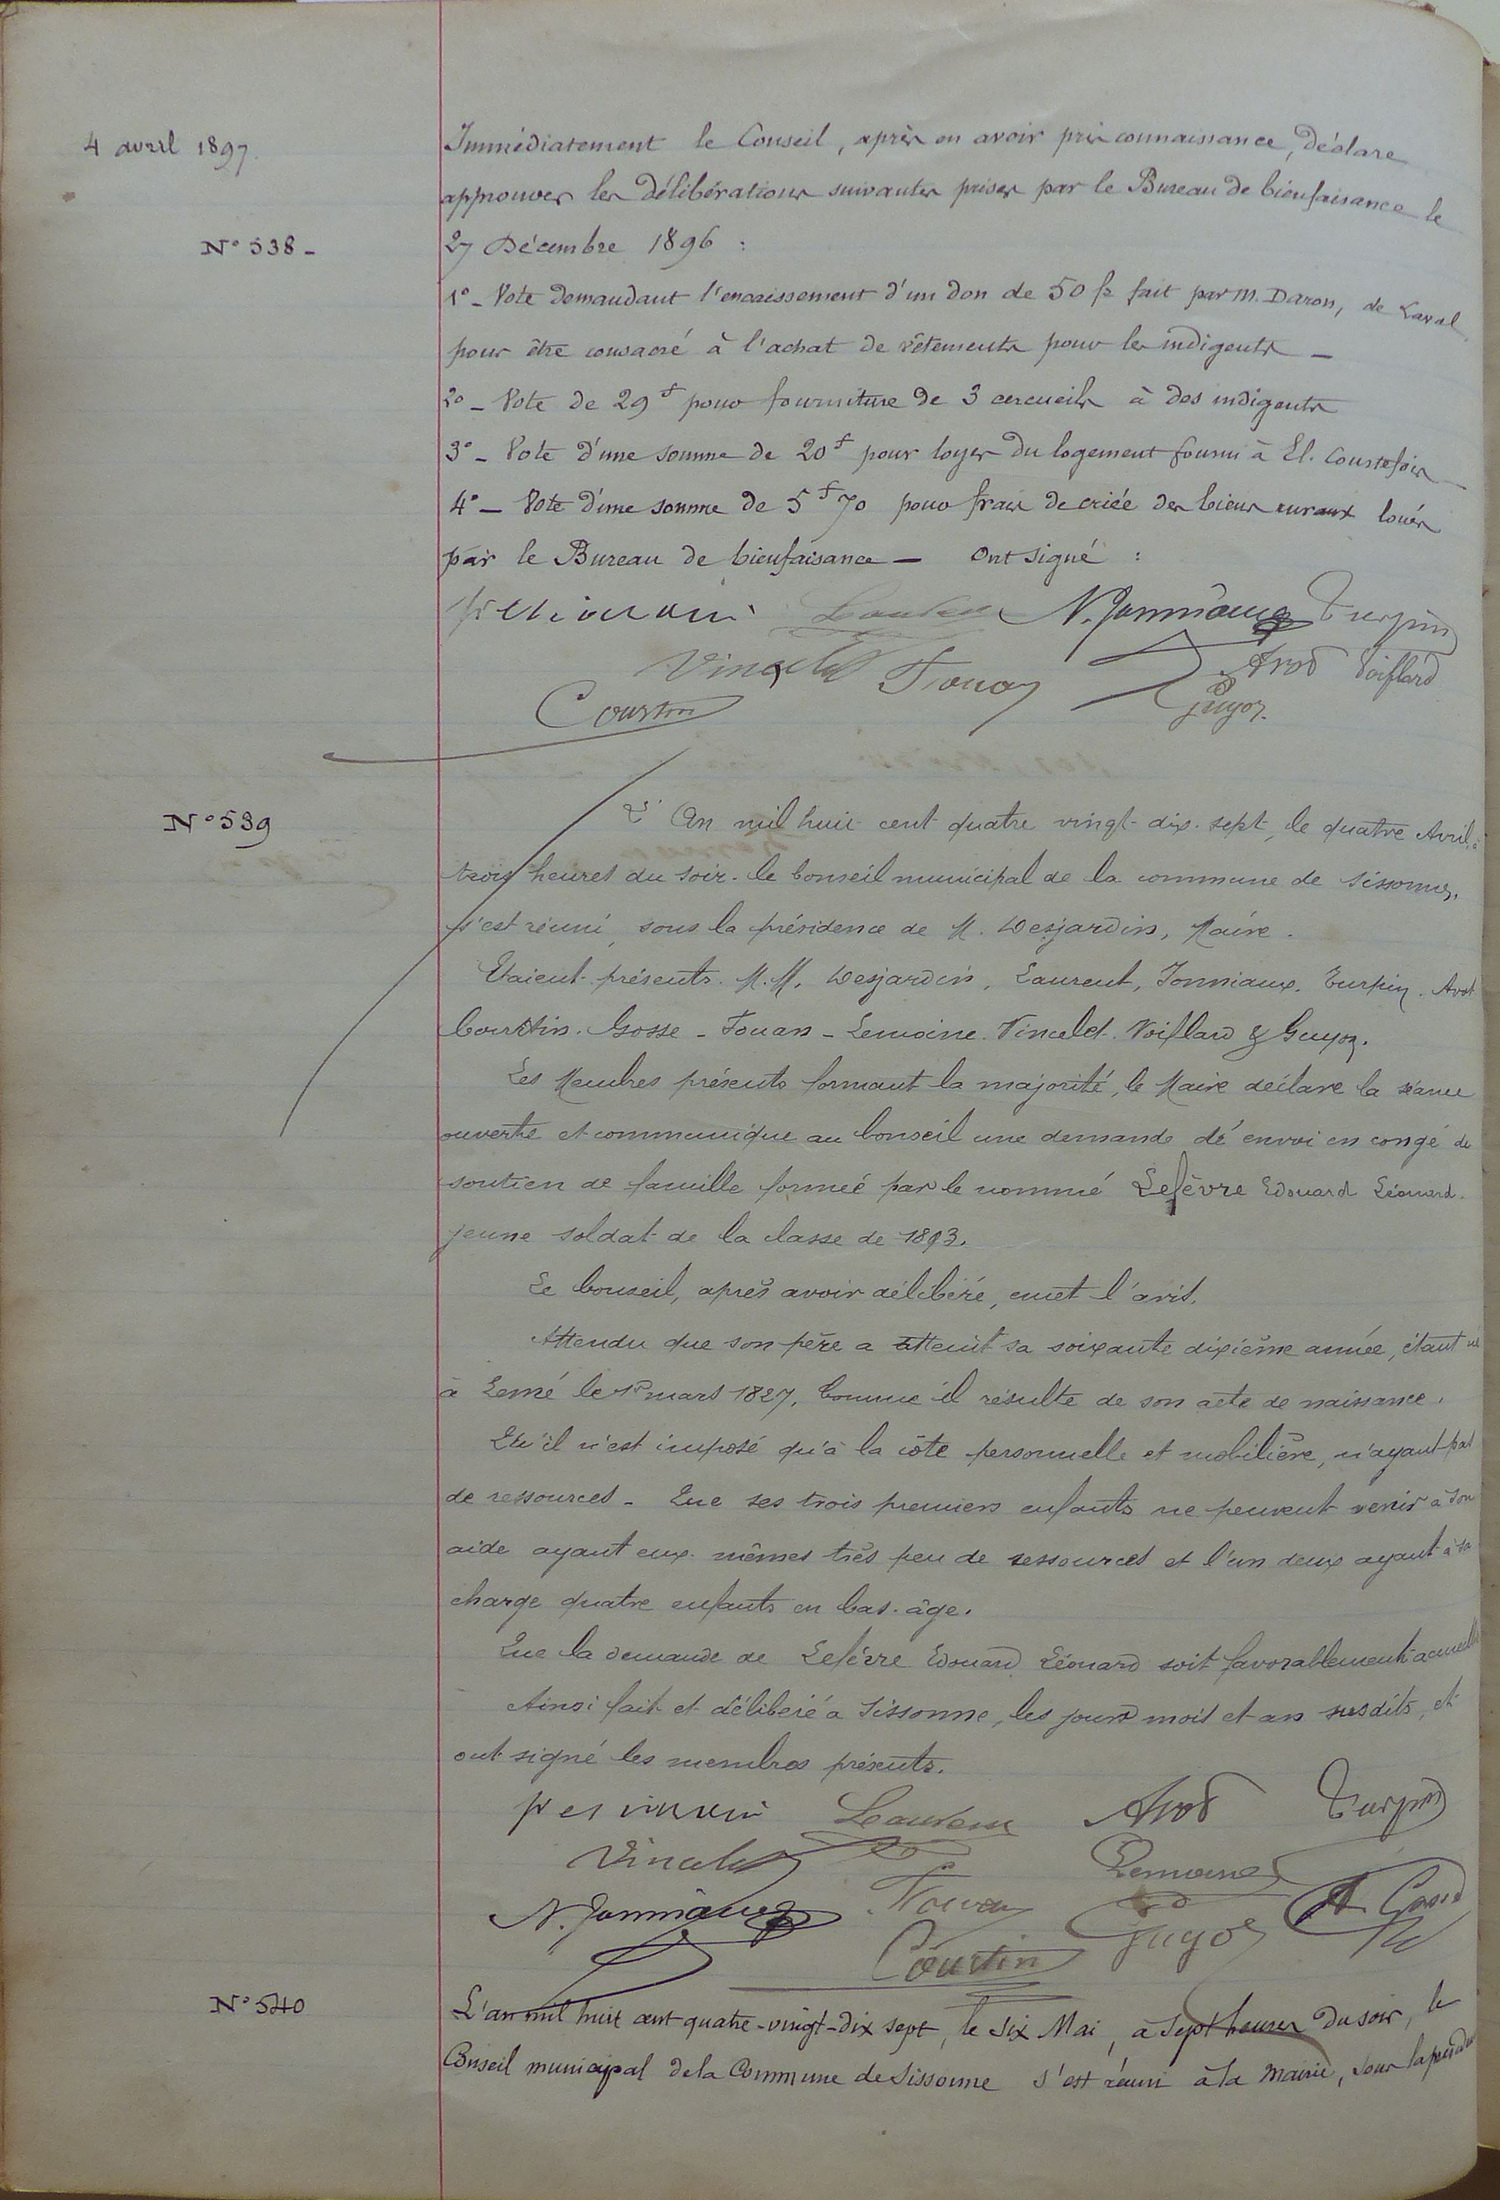 4 avril 1897.
Immédiatement le Conseil, après en avoir pris connaissance, déclare
approuver les délibérations suivantes prises par le Bureau de bienfaisance le
N° 538 -
27 Décembre 1896 :
1° - Vote demandant l'encaissement d'un don de 50 fr fait par M. Daron, de Laval
pour être consacré à l'achat de vêtements pour les indigents -
2° - Vote de 29 f pour fourniture de 3 cercueils à des indigents
3° - Vote d'une somme de 20 f pour loyer du logement fourni à El. Coustefoir -
4° - Vote d'une somme de 5 f 70 pour frais de criée des biens ruraux loués
par le Bureau de bienfaisance - Ont signé :
Laurent N. Jonniaux Turpin
Vincelet Fouan Avot Voiflard
Courtin Guyot
N° 539
L'An mil huit cent quatre vingt dix. sept, le quatre Avril, à
trois heures du soir. le Conseil municipal de la commune de Sissonne,
s'est réuni, sous la présidence de M. Desjardin, Maire.
Etaient présents. M.M. Desjardin, Laurent, Jonniaux. Turpin. Avot
Courtin. Gosse - Fouan - Lemoine. Vincelet. Voiflard & Guyot.
Les Membres présents formant la majorité, le Maire déclare la séance
ouverte et communique au Conseil une demande dé envoi en congé de
soutien de famille formée par le nommé Lefèvre Edouard Léonard.
jeune soldat de la classe de 1893.
Le Conseil, après avoir délibéré, emet l'avis.
Attendu que son père a atteint sa soixante dixième année, étant né
à Lemé le 1er mars 1827, Comme il résulte de son acte de naissance.
Qu'il n'est imposé qu'à la côte personnelle et mobilière, n'ayant pas
de ressources - Que ses trois premiers enfants ne peuvent venir à son
aide ayant eux-mêmes très peu de ressources et l'un deux ayant à sa
charge quatre enfants en bas-âge.
Que la demande de Lefèvre Edouard Léonard soit favorablement
Ainsi fait et délibéré à Sissonne, les jours mois et an susdits, et
ont signé les membres présents.
Laurent Avot Turpin
Vincelet Lemoine
N. Jonniaux Fouan Guyot
Courtin
N° 540
L'an mil huit cent quatre-vingt-dix sept, le Six Mai, à Sept heures du soir, le
Conseil municipal de la Commune de Sissonne s'est réuni à la Mairie, sous la